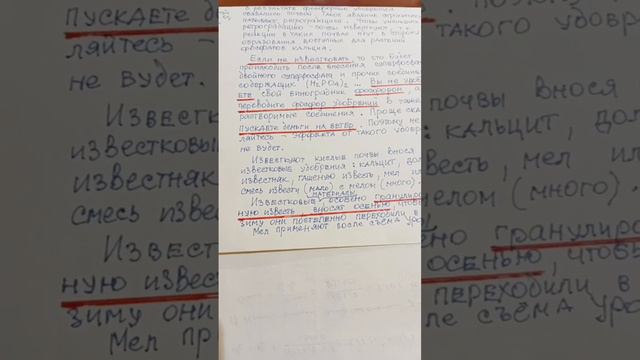 В результате фосфорные удобрения
почвой. Такое явление
называют ретроградация. Чтобы
ретроградацию - почву известкуют.
реакции в таких почвах идут в сторону
образования доступных для растений
фосфатов кальция.
Если не известковать, то это будет
происходить после внесения суперфосфа
двойного суперфосфата и прочих соедине
содержащих (H₂PO₄)₂ ... Вы не удоб
ете свой виноградник фосфором, а
переводите фосфор удобрений в
растворимые соединения. Проще ска
пускаете деньги на ветер. Поэтому не
ляйтесь - эффекта от такого удобр
не будет.
Известкуют кислые почвы внося
известковые удобрения: кальцит, дол
известняк, гашеную известь, мел или
смесь извести (мало) с мелом (много).
материалы
Известковые, особено гранулиро
ную известь вносят осенью, чтобы
зиму они постепенно переходили в
Мел применяют после съёма уро